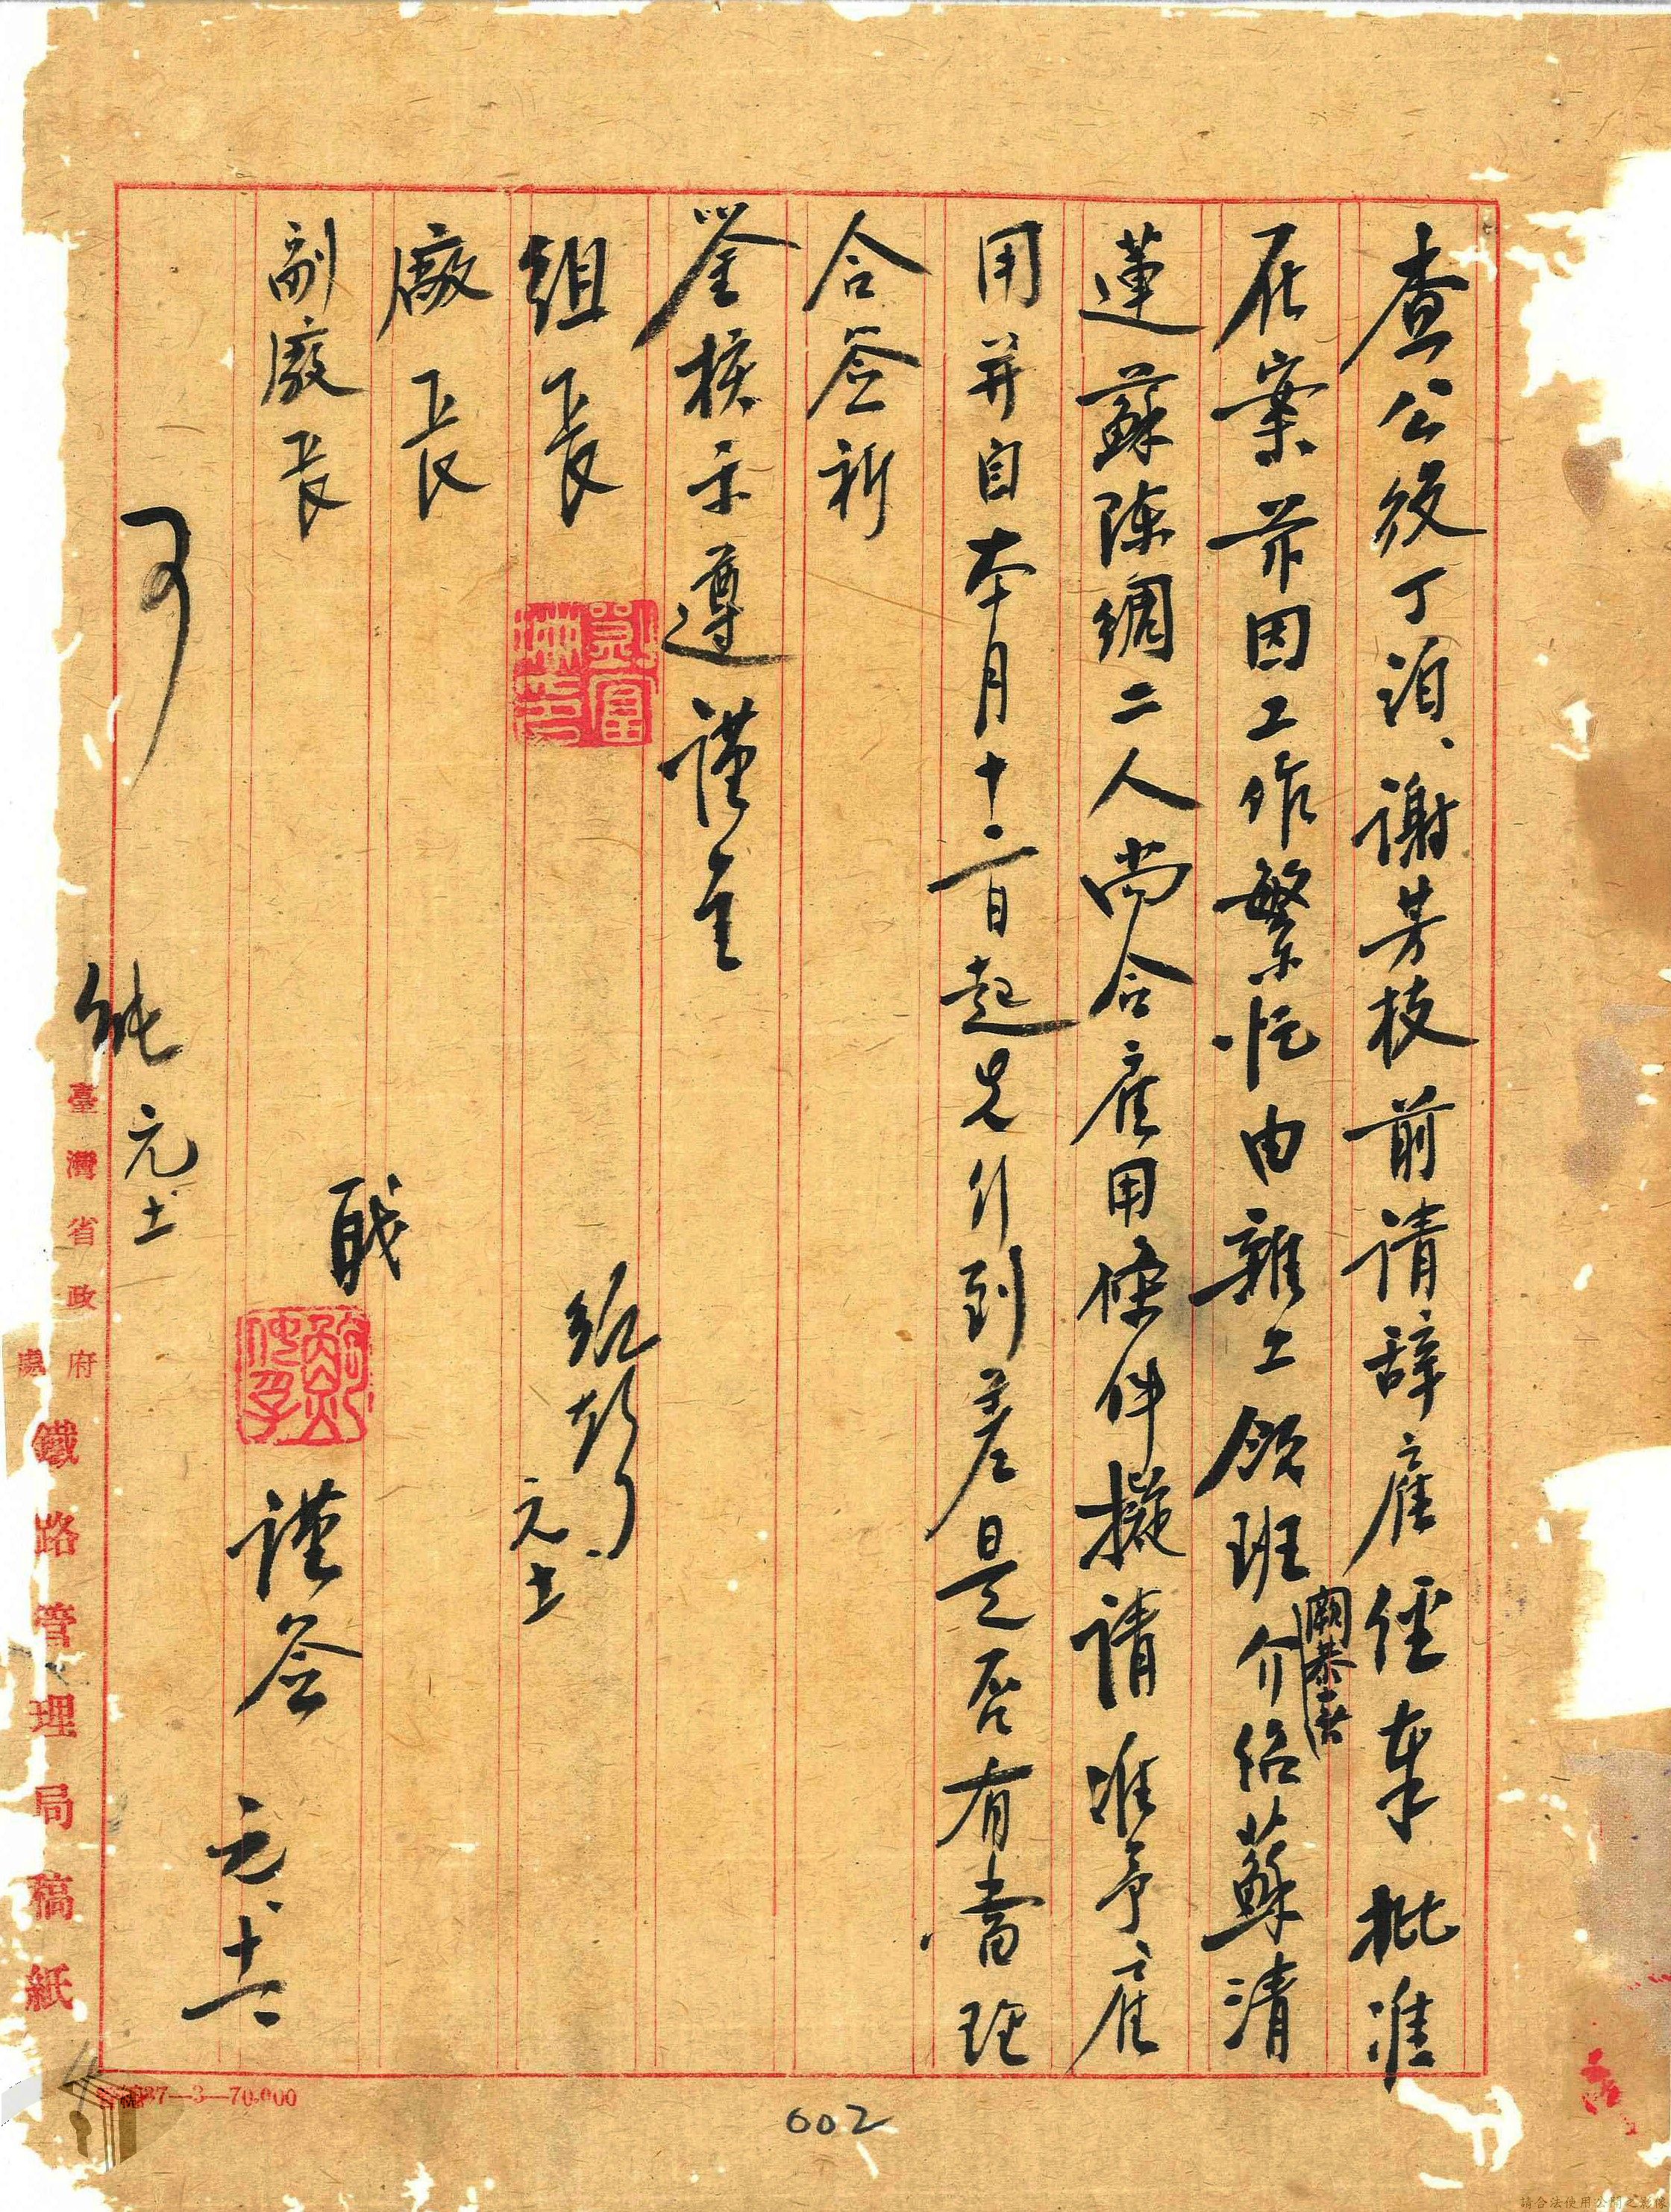 查公役丁泊、謝芳枝前请辞雇經奉批准
在案茲因工作繁忙由雜工領班介绍蘇清
蓮蘇陳綢二人尚合雇用條件擬请准予雇
用并自本月十二日起先行到差是否有當理
合签祈
鉴核示遵謹呈
組長
廠長
副廠長
職
謹签 元、十二
可
元、十二
元、十二
臺灣省政府鐵路管理局稿紙
37—3—70.000
602
請合法使用公開之影像